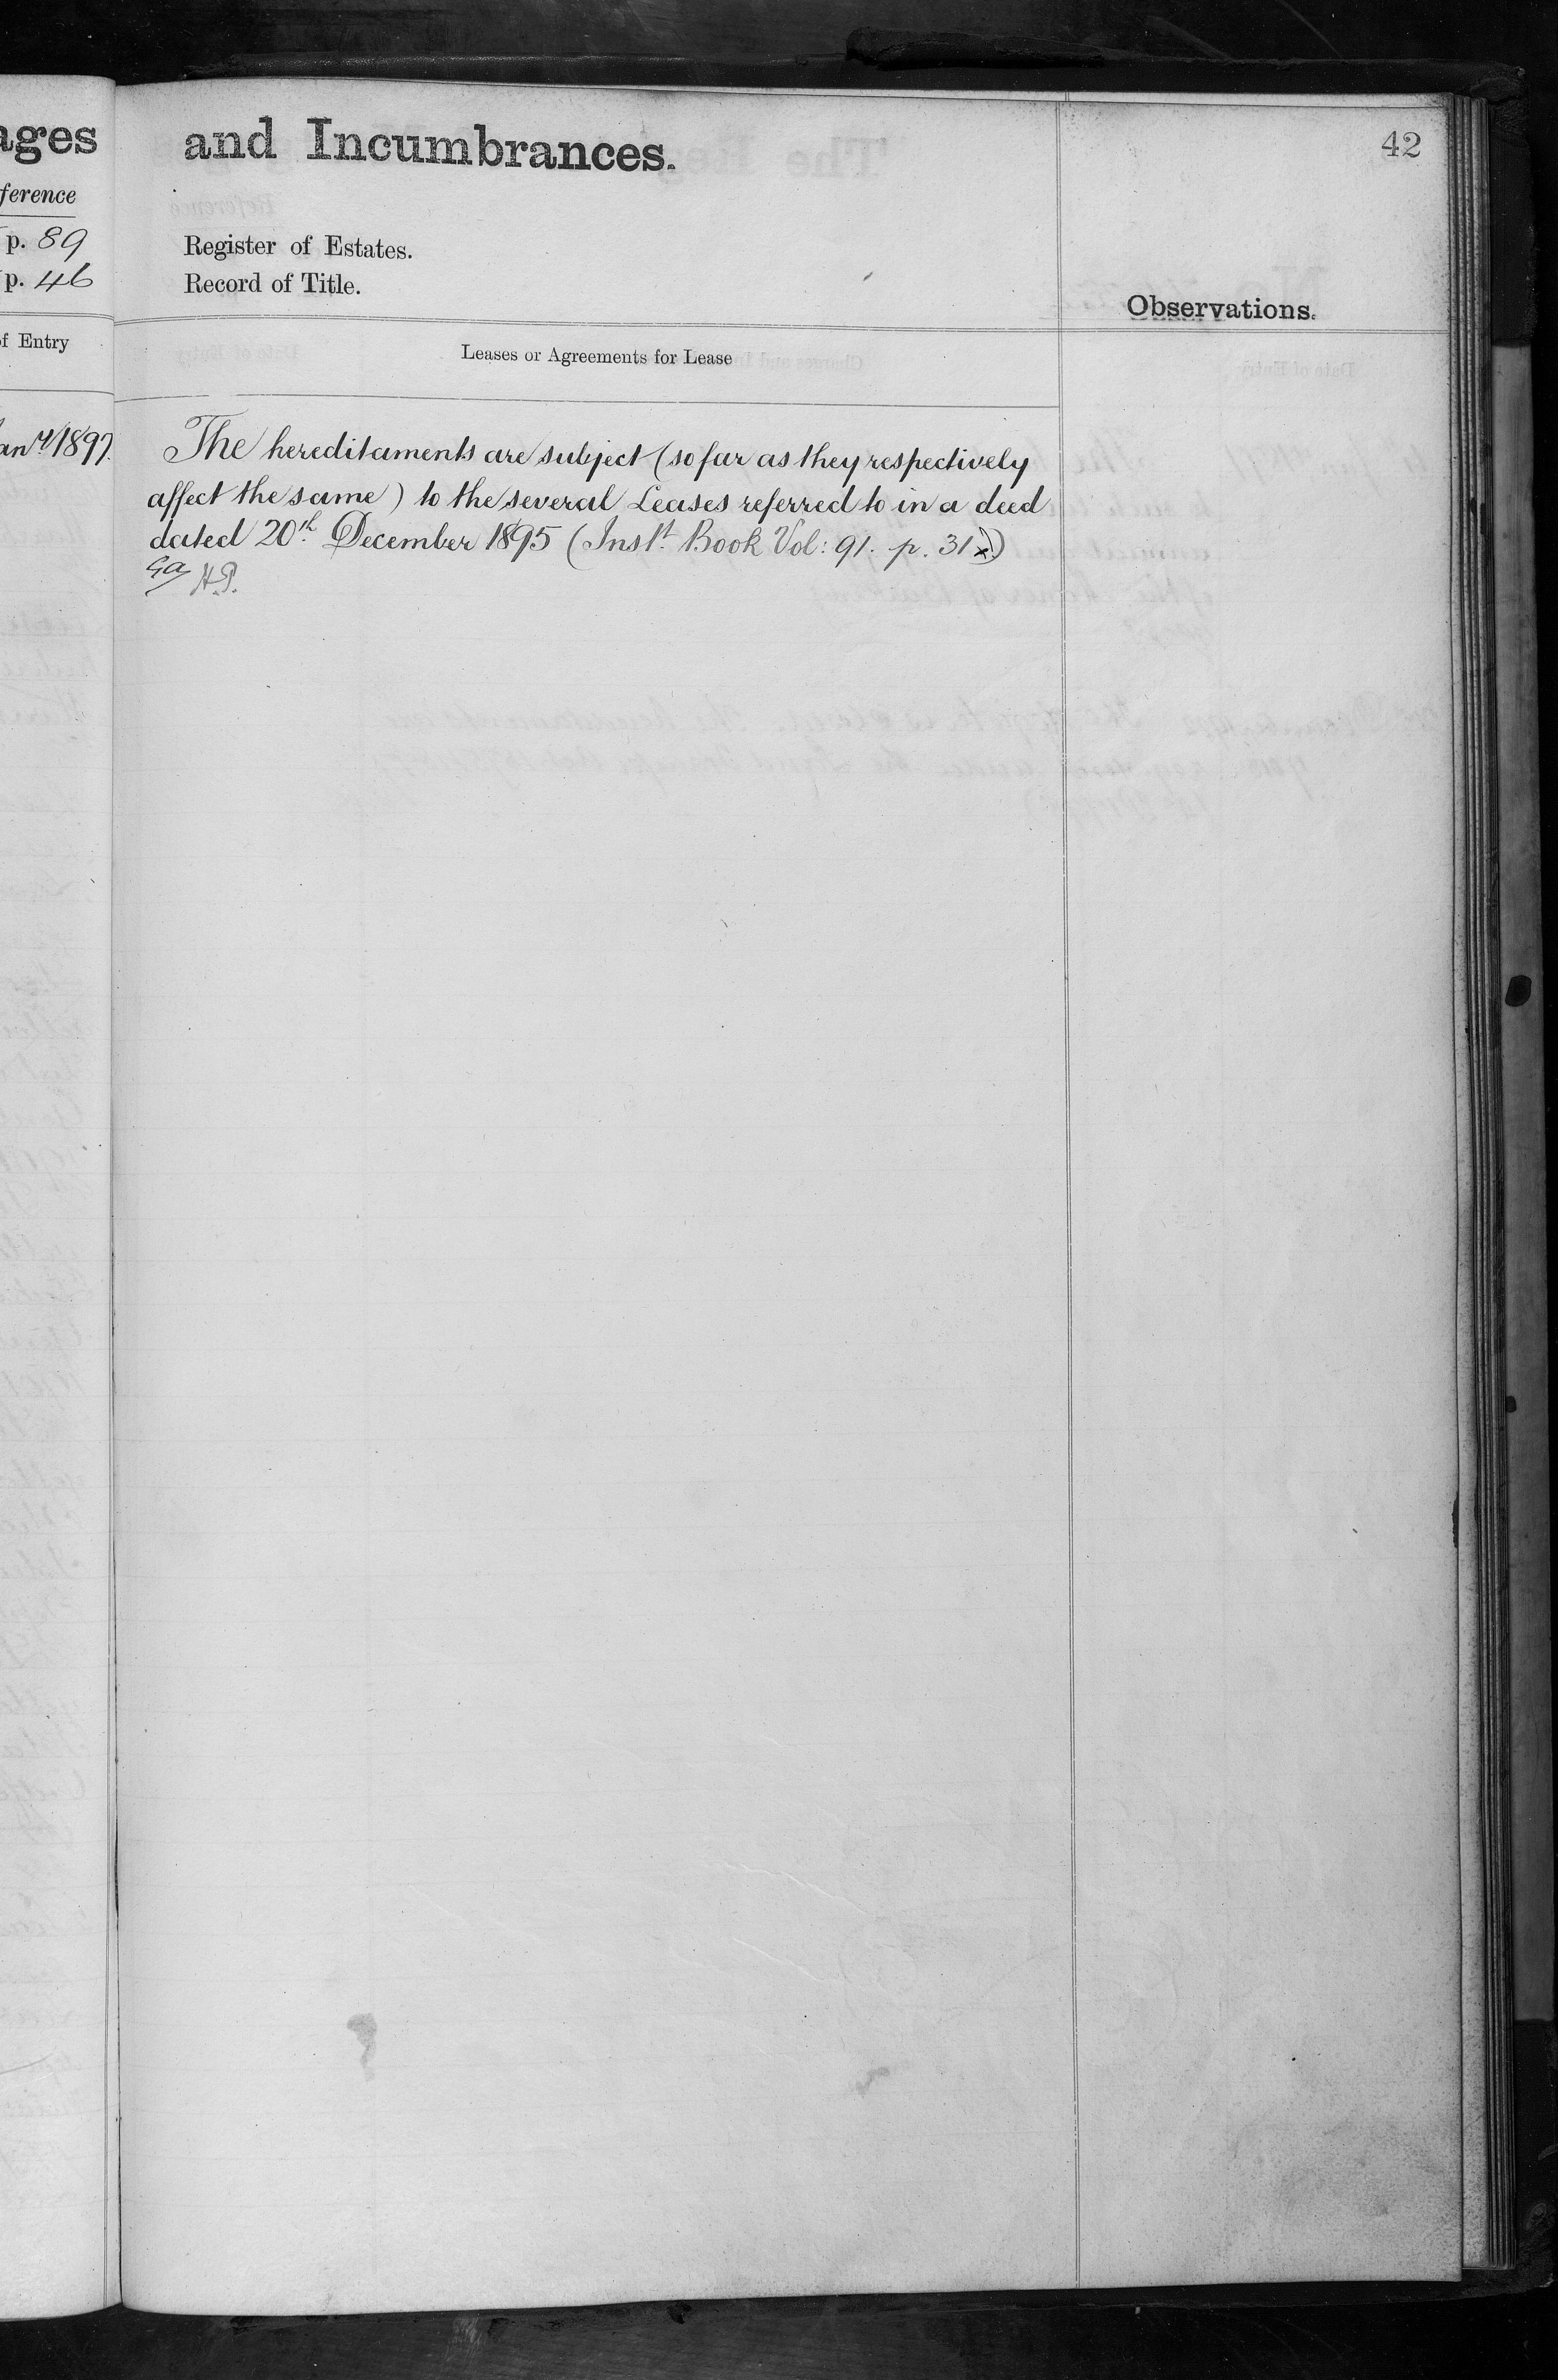 ages
and Incumbrances.
42
ference
p. 89
Register of Estates.
p. 46
Record of Title.
Observations.
of Entry
Leases or Agreements for Lease
Jany 1897.
The hereditaments are subject (so far as they respectively
affect the same) to the several Leases referred to in a deed
dated 20th December 1895 (Inst. Book Vol: 91. p. 31
H.P.